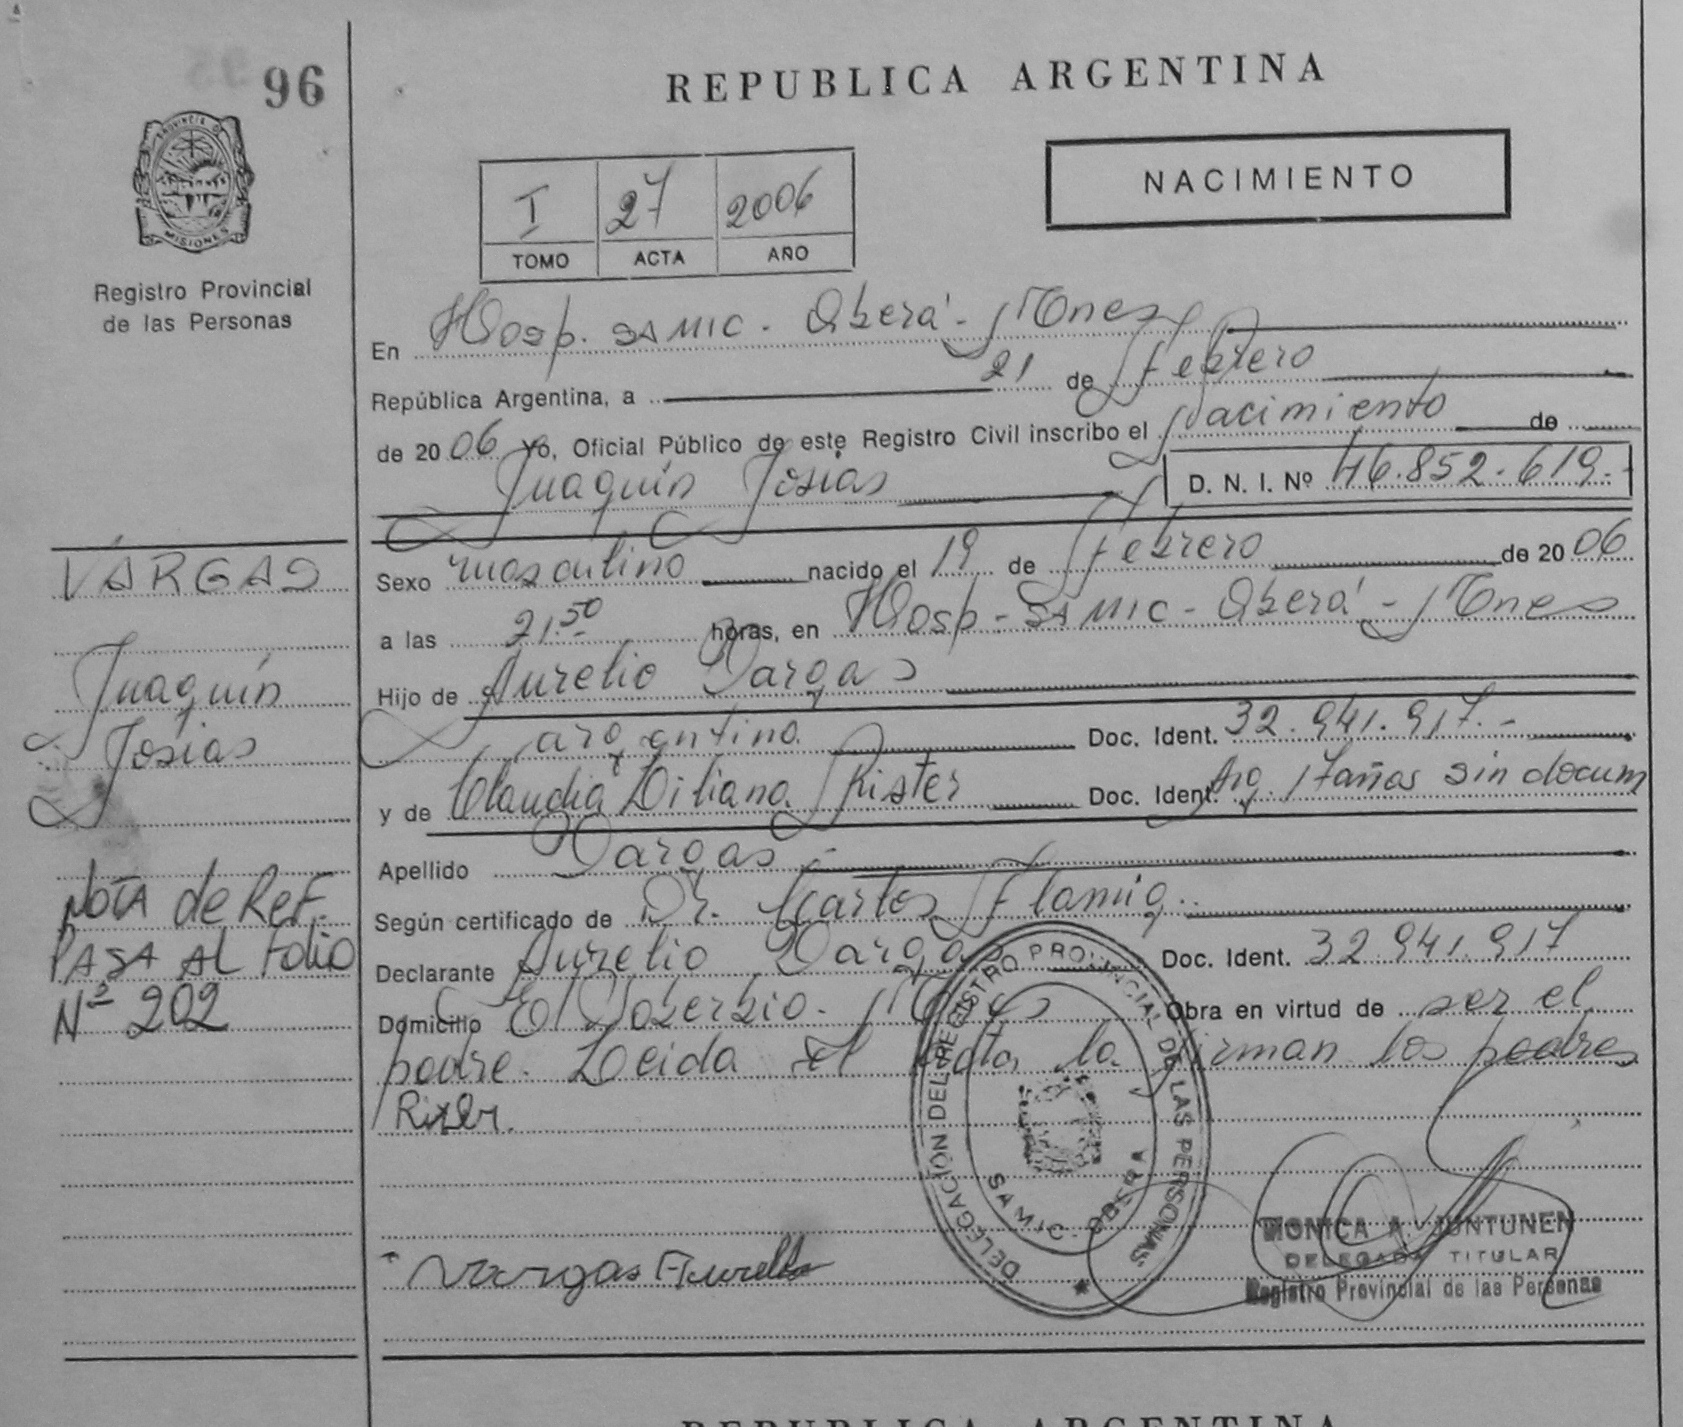 96
REPUBLICA ARGENTINA
NACIMIENTO
PROVINCIA D
MISIONES
Registro Provincial
de las Personas
I 27 2006
TOMO ACTA AÑO
En Hosp. SAMIC - Oberá - Mnes
República Argentina, a 21 de febrero
de 20 06 Yo, Oficial Público de este Registro Civil inscribo el Nacimiento de
Juaquín Josias D. N. I. Nº 46.852.619.-
VARGAS
Juaquín
Josias
Sexo masculino nacido el 19 de febrero de 20 06
a las 21.50 horas, en Hosp - SAMIC - Oberá - Mnes
Hijo de Aurelio Vargas
argentino Doc. Ident. 32.941.917.-
y de Claudia Liliana Rister Doc. Ident. Arg. 17 años sin docum
Apellido Vargas -
Según certificado de Dr. Carlos Flamig.
Declarante Aurelio Vargas Doc. Ident. 32.941.917
Domicilio El Soberbio - Mnes Obra en virtud de ser el
padre. Leida el Acta, la firman los padres
NOTA de Ref.
PASA AL Folio
Nº 202
DELEGACION DEL REGISTRO PROVINCIAL DE LAS PERSONAS
SAMIC - OBERA
Vargas Aurelio
MONICA A. JUNTUNEN
DELEGADA TITULAR
Registro Provincial de las Personas
REPUBLICA ARGENTINA